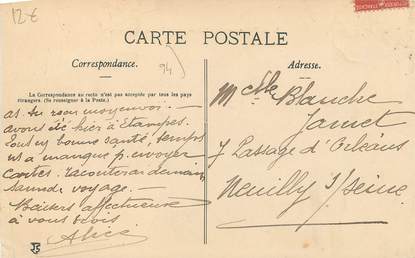 12€
CARTE POSTALE
Correspondance.
94
Adresse.
La Correspondance au recto n'est pas acceptée par tous les pays
étrangers. (Se renseigner à la Poste.)
as-tu reçu mon envoi —
avons été hier à Étampes.
tous en bonne santé, temps
ns a manqué p. envoyer
cartes. Raconterai demain
samedi voyage. —
Baisers affectueux
à vous trois
Alice
Melle Blanche
Jamet
7 Passage d'Orléans
Neuilly s/Seine